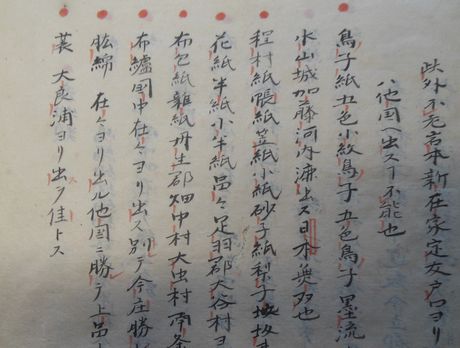 此外不老吉本新在家定友戸口ヨリ
ハ他国ヘ出スヿ不能也
鳥子紙五色小紋鳥子五色鳥子墨流
水山城加藤河内漉上ス日本無双也
程村紙帳紙笠紙小紙砂子紙梨子
花紙半紙小半紙品々足羽郡大谷村ヨ
布包紙雑紙丹生郡畑中村大虫村南条
布纑国中在々ヨリ出ス別テ今庄勝
肱綿 在々ヨリ出ル他国ニ勝テ上品
蓑 大良浦ヨリ出ヲ佳トス